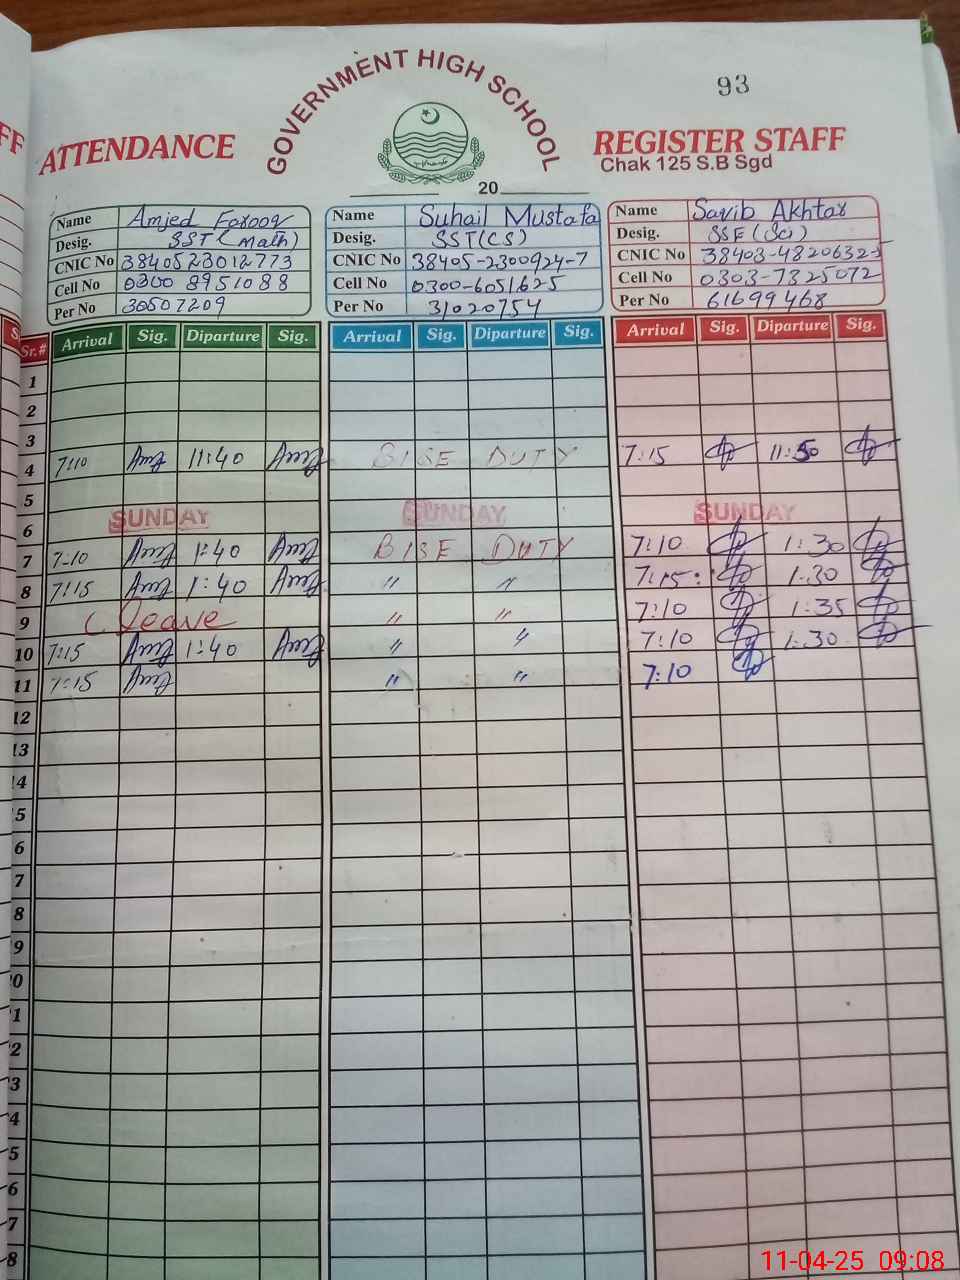 GOVERNMENT HIGH SCHOOL
93
FF
ATTENDANCE
REGISTER STAFF
Chak 125 S.B Sgd
20
Name Amjed Farooq
Desig. SST (math)
CNIC No 3840523012773
Cell No 0300 8951088
Per No 30507209
Name Suhail Mustafa
Desig. SST(CS)
CNIC No 38405-2300924-7
Cell No 0300-6051625
Per No 31020754
Name Saqib Akhtar
Desig. SSE (Sci)
CNIC No 38403-48206323-
Cell No 0303-7325072
Per No 61699468
Sr.# Arrival Sig. Diparture Sig. Arrival Sig. Diparture Sig. Arrival Sig. Diparture Sig.
1
2
3
4 7:10 11:40 BISE DUTY 7:15 11:50
5
6 SUNDAY SUNDAY SUNDAY
7 7:10 1:40 BISE DUTY 7:10 1:30
8 7:15 1:40 " " 7:15: 1:30
9 C Leave " " 7:10 1:35
10 7:15 1:40 " " 7:10 1:30
11 7:15 " " 7:10
12
13
14
5
6
7
8
9
0
1
2
3
4
5
6
7
8
11-04-25 09:08